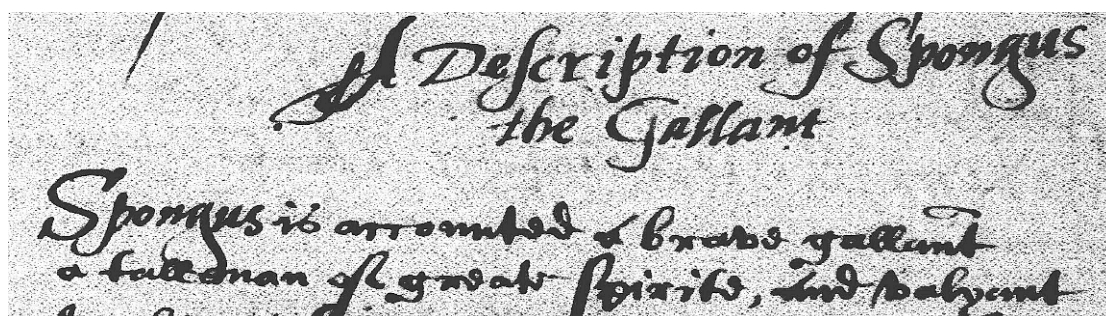 A Description of Spongus
the Gallant
Spongus is accounted a brave gallant
a talle man of greate spirite, and valyant